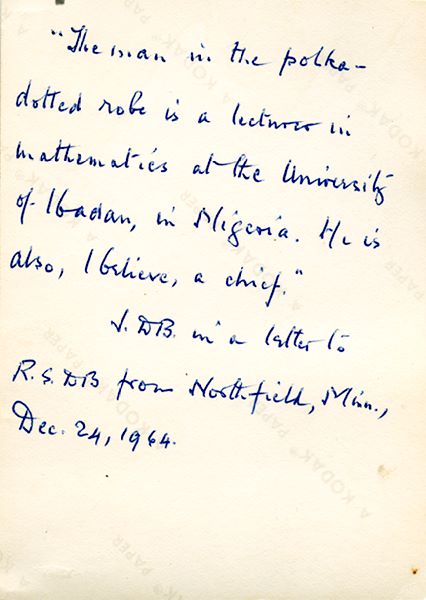 "The man in the polka-
dotted robe is a lecturer in
mathematics at the University
of Ibadan, in Nigeria. He is
also, I believe, a chief."
J. DB. in a letter to
R.S. DB from Northfield, Minn.,
Dec. 24, 1964.
A KODAK® PAPER